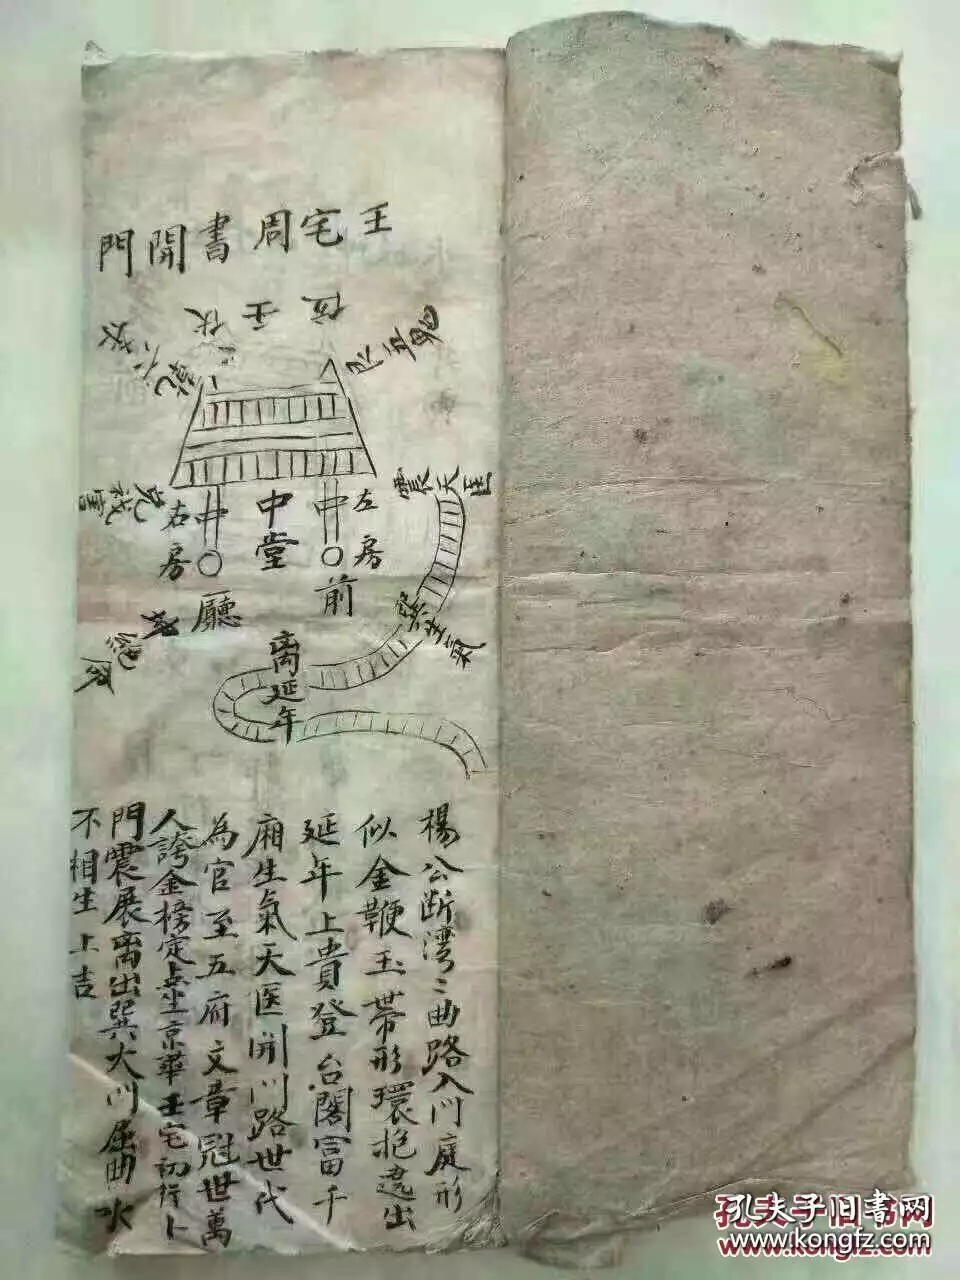 王宅周書開門
位壬伏
乾六煞
艮五鬼
震天医
兌禍害
坤絕命
巽生氣
离延年
中堂
中
中
左房
右房
前
廳
楊公断湾〻曲路入门庭形
似金鞭玉帶形環抱遶出
延年上貴登台閣富千
廂生氣天医開门路世代
為官至五府文章冠世萬
人誇金榜定点坐京華壬宅初行卜
門震展离出巽大门屈曲水
不相生上吉
孔夫子旧书网
www.kongfz.com